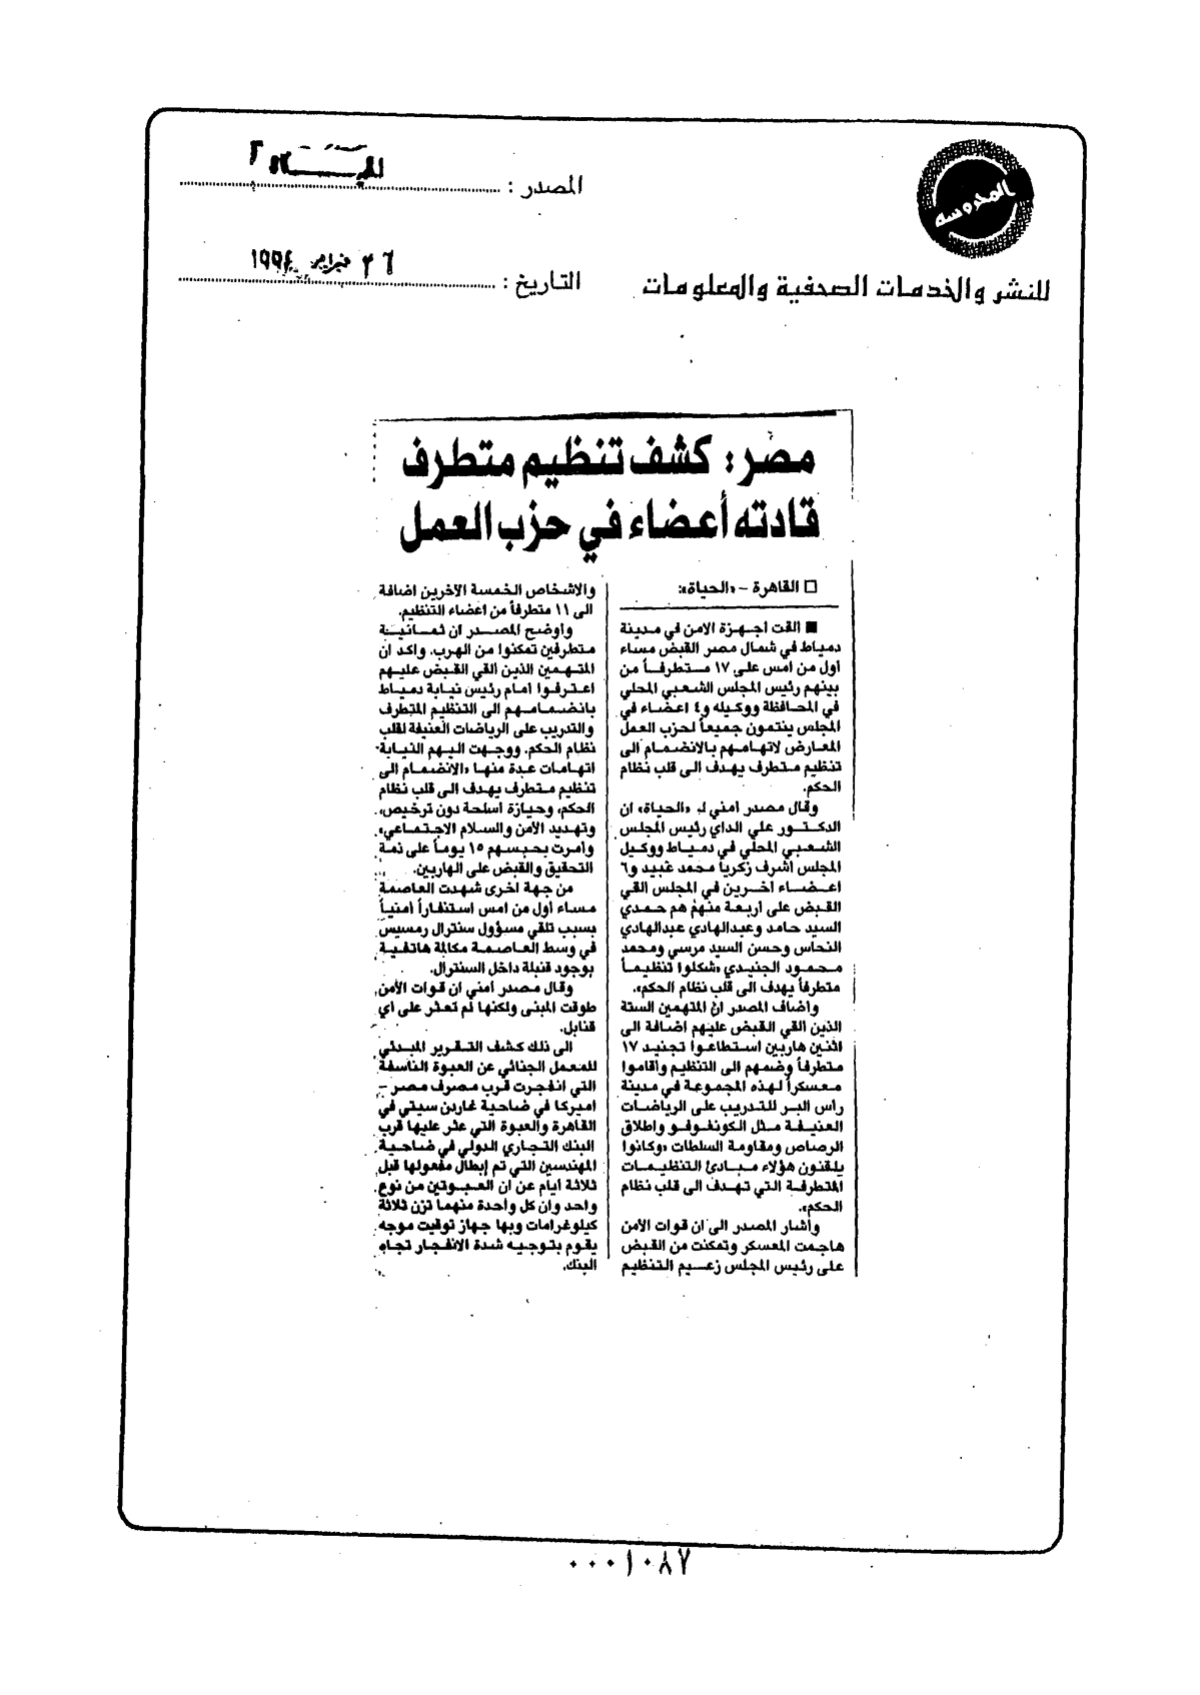 المحروسه
للنشر والخدمات الصحفية والمعلومات
المصدر :
التاريخ : ٢٦ فبراير ١٩٩٤
مصر: كشف تنظيم متطرف
قادته أعضاء في حزب العمل
□ القاهرة – «الحياة»:
■ القت اجهزة الامن في مدينة
دمياط في شمال مصر القبض مساء
اول من امس على ١٧ متطرفاً من
بينهم رئيس المجلس الشعبي المحلي
في المحافظة ووكيله و٤ اعضاء في
المجلس ينتمون جميعاً لحزب العمل
المعارض لاتهامهم بالانضمام الى
تنظيم متطرف يهدف الى قلب نظام
الحكم.
وقال مصدر امني لـ «الحياة» ان
الدكتور علي الداي رئيس المجلس
الشعبي المحلي في دمياط ووكيل
المجلس اشرف زكريا محمد عبيد و٦
اعضاء اخرين في المجلس القي
القبض على اربعة منهم هم حمدي
السيد حامد وعبدالهادي عبدالهادي
النحاس وحسن السيد مرسي ومحمد
محمود الجنيدي «شكلوا تنظيماً
متطرفاً يهدف الى قلب نظام الحكم».
واضاف المصدر ان المتهمين الستة
الذين القي القبض عليهم اضافة الى
اثنين هاربين استطاعوا تجنيد ١٧
متطرفاً وضمهم الى التنظيم وأقاموا
معسكراً لهذه المجموعة في مدينة
راس البر للتدريب على الرياضات
العنيفة مثل الكونغوفو واطلاق
الرصاص ومقاومة السلطات «وكانوا
يلقنون هؤلاء مبادئ التنظيمات
المتطرفة التي تهدف الى قلب نظام
الحكم».
وأشار المصدر الى ان قوات الأمن
هاجمت المعسكر وتمكنت من القبض
على رئيس المجلس زعيم التنظيم
والاشخاص الخمسة الآخرين اضافة
الى ١١ متطرفاً من اعضاء التنظيم.
وأوضح المصدر ان ثمانية
متطرفين تمكنوا من الهرب. واكد ان
المتهمين الذين القي القبض عليهم
اعترفوا امام رئيس نيابة دمياط
بانضمامهم الى التنظيم المتطرف
والتدريب على الرياضات العنيفة لقلب
نظام الحكم. ووجهت اليهم النيابة
اتهامات عدة منها «الانضمام الى
تنظيم متطرف يهدف الى قلب نظام
الحكم، وحيازة اسلحة دون ترخيص،
وتهديد الأمن والسلام الاجتماعي».
وأمرت بحبسهم ١٥ يوماً على ذمة
التحقيق والقبض على الهاربين.
من جهة اخرى شهدت العاصمة
مساء أول من امس استنفاراً أمنياً
بسبب تلقي مسؤول سنترال رمسيس
في وسط العاصمة مكالمة هاتفية
بوجود قنبلة داخل السنترال.
وقال مصدر أمني ان قوات الأمن
طوقت المبنى ولكنها لم تعثر على أي
قنابل.
الى ذلك كشف التقرير المبدئي
للمعمل الجنائي عن العبوة الناسفة
التي انفجرت قرب مصرف مصر –
اميركا في ضاحية غاردن سيتي في
القاهرة والعبوة التي عثر عليها قرب
البنك التجاري الدولي في ضاحية
المهندسين التي تم إبطال مفعولها قبل
ثلاثة ايام عن ان العبوتين من نوع
واحد وان كل واحدة منهما تزن ثلاثة
كيلوغرامات وبها جهاز توقيت موجه
يقوم بتوجيه شدة الانفجار تجاه
البنك.
٠٠٠١٠٨٧